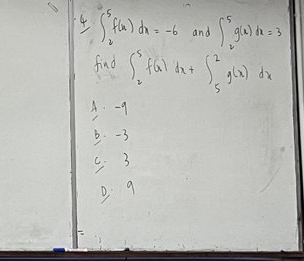 4. ∫₂⁵ f(x) dx = -6 and ∫₂⁵ g(x) dx = 3
find ∫₂⁵ f(x) dx + ∫₅² g(x) dx
A. -9
B. -3
C. 3
D. 9